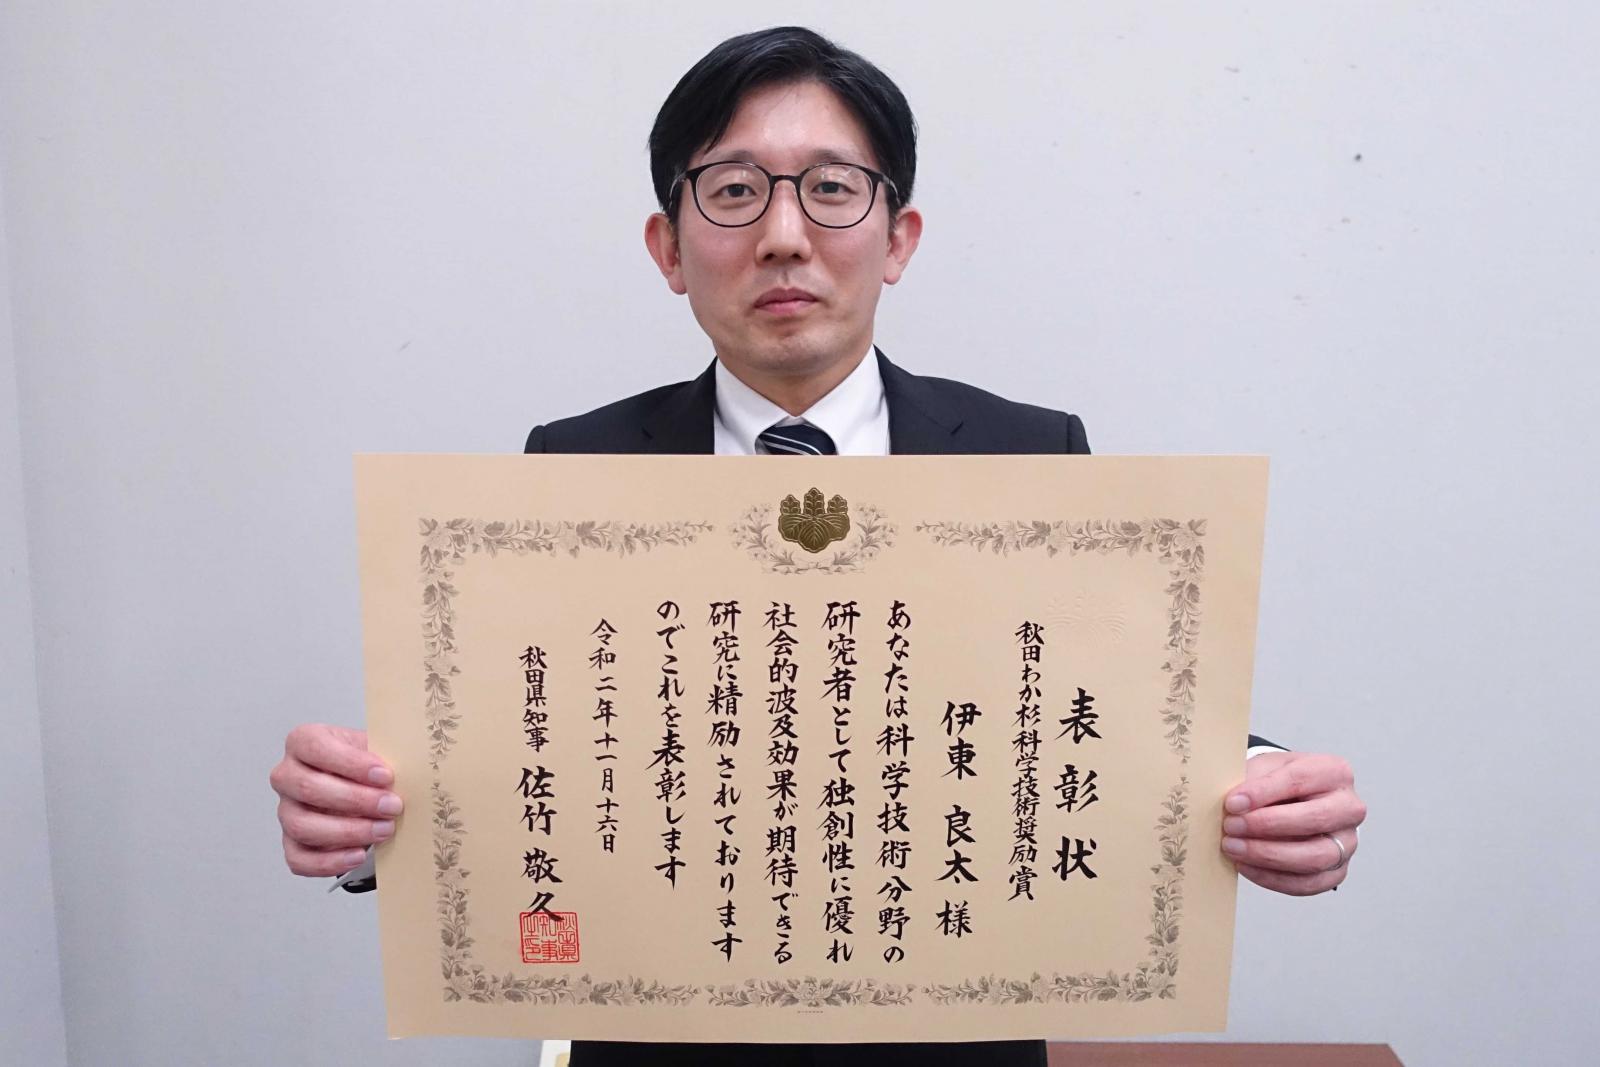 表彰状
秋田わか杉科学技術奨励賞
伊東 良太 様
あなたは科学技術分野の
研究者として独創性に優れ
社会的波及効果が期待できる
研究に精励されております
のでこれを表彰します
令和二年十一月十六日
秋田県知事 佐竹 敬久